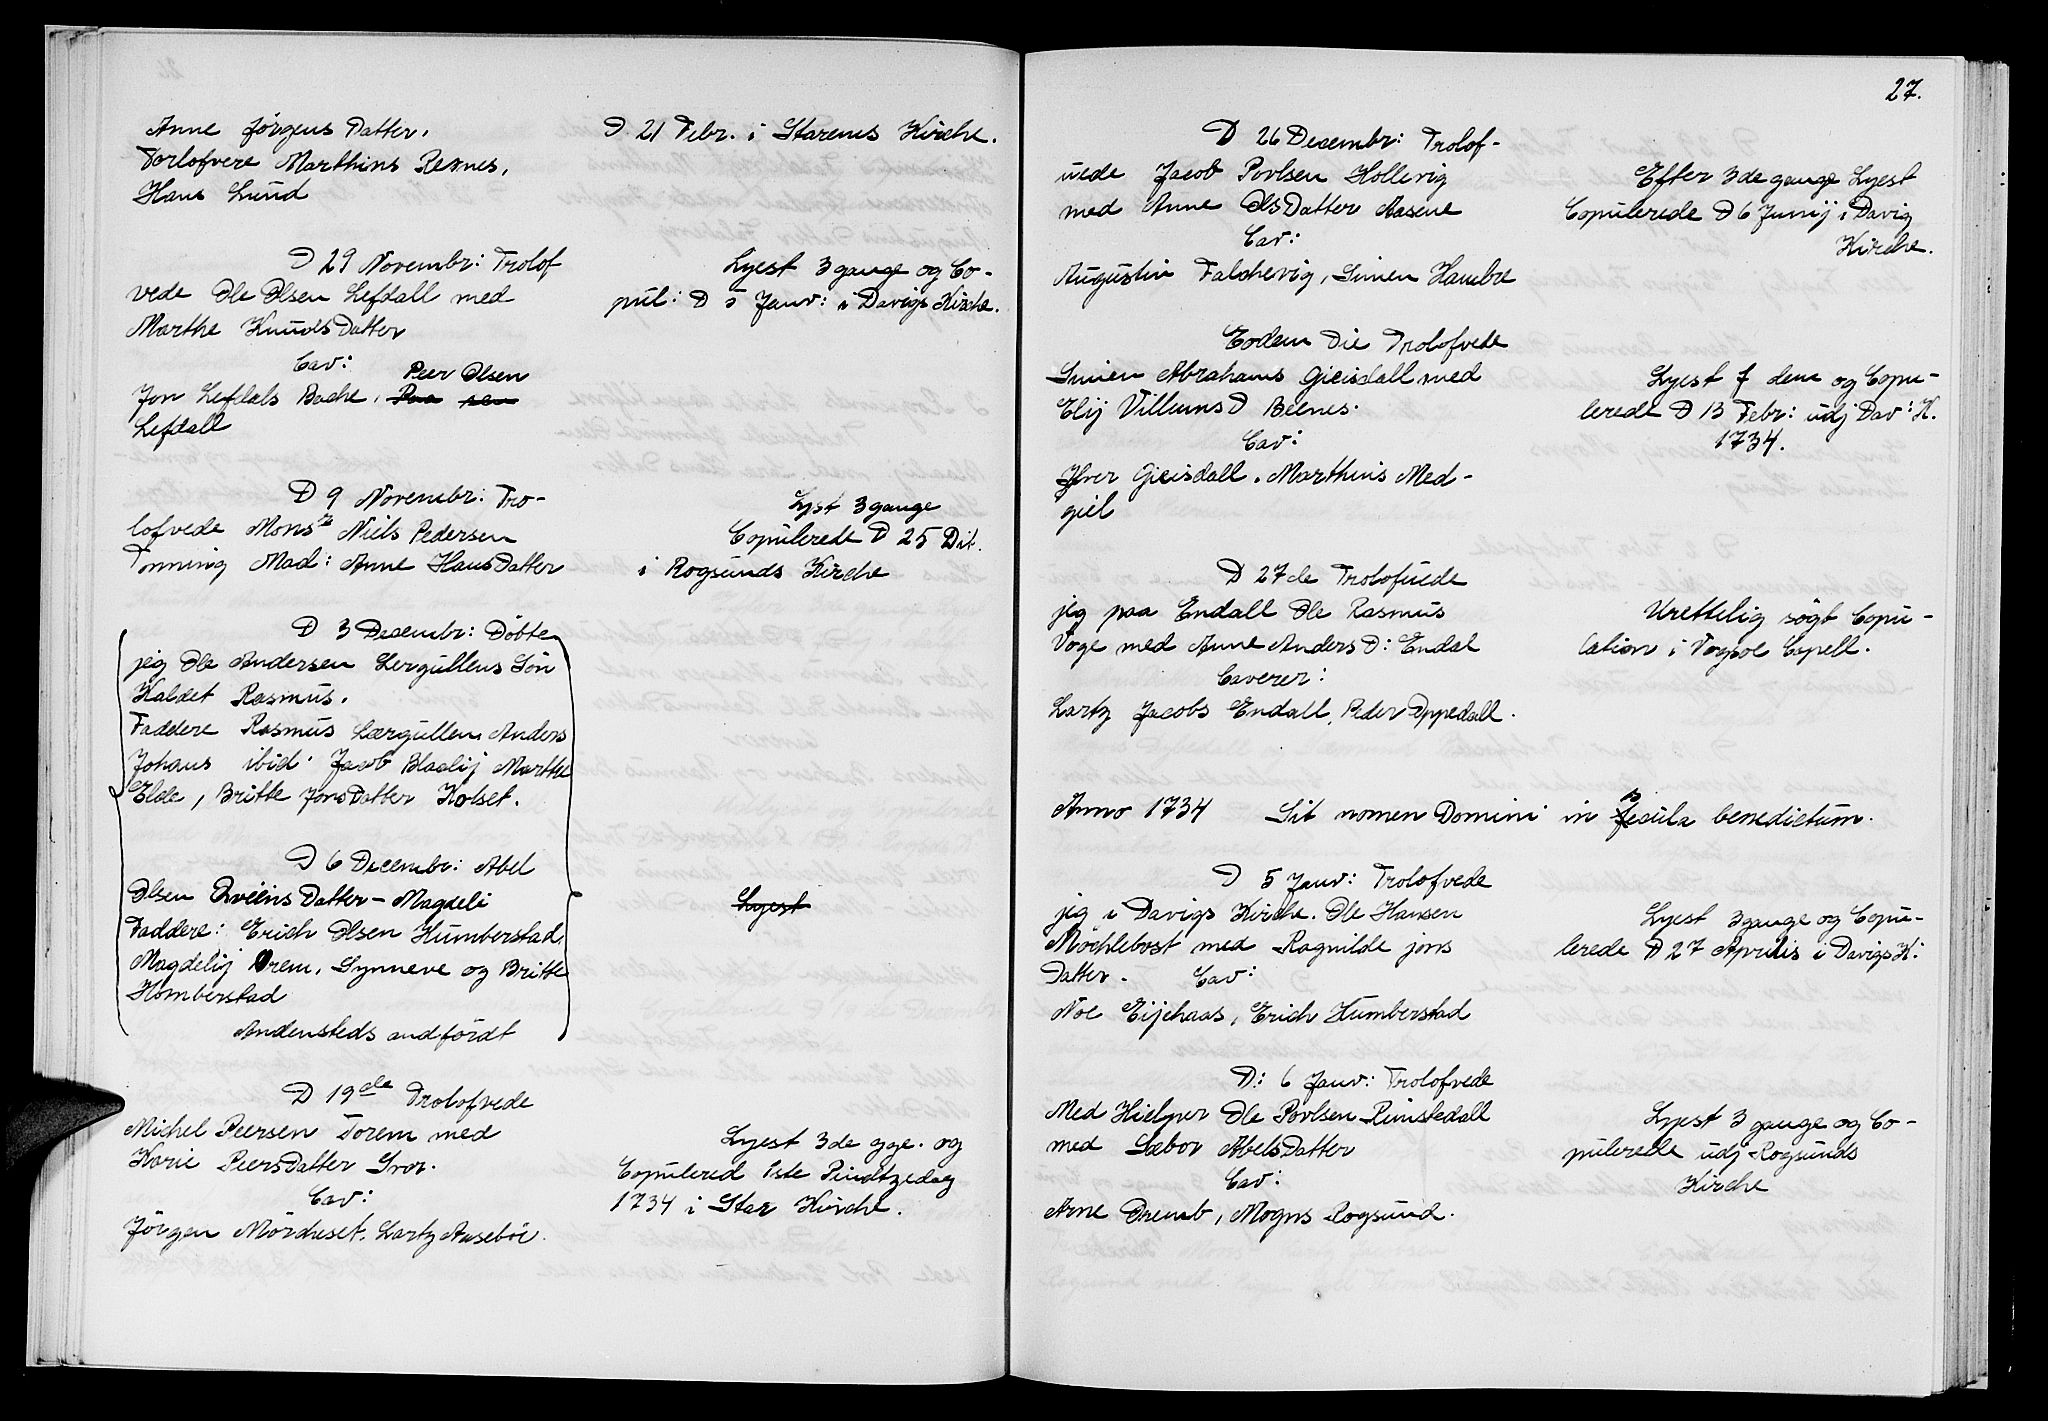 Anne Jörgens Datter.
Torlofvere Marthins Resnes,
Hans Lund
D 21 Febr. i Starens Kirche.
D 29 Novembr: Trolof
vede Ole Olsen Lefdall med
Marthe Knuds Datter
Cav:
Peer Olsen
Jon Lefdals Bache,
Lefdall
Lyest 3 gange og Co-
pul: D 5 Janv: i Davigs Kirche.
D 9 Novembr: Tro-
lofvede Monsr Niels Pedersen
Tonning Mad: Anne Hans Datter
Lyst 3 gange
Copulerede D 25 Dit.
i Rogsunds Kirche
D 3 Decembr: Döbte
jeg Ole Andersen Lergullens Sön
Kaldet Rasmus.
Faddere Rasmus Lærgullen, Anders
Johans ibid. Jacob Blaalij Marthe
Elde, Britte Jons Datter Kolset.
D 6 Decembr: Abel
Olsen Qviens Datter - Magdeli
Faddere: Erich Olsen Humberstad,
Magdelij Orem, Synneve og Britte
Homberstad
Andensteds andfördt
Lyest
D 19de Trolofvede
Michel Peersen Torem med
Karie Peers Datter Svor.
Cav:
Jörgen Mörcheset, Lartz Aaseböe.
Lyest 3de gge. og
Copulered 1ste Pindtzedag
1734 i Star Kirche.
27.
D 26 Decembr: Trolof-
uede Jacob Povlsen Hollevig
med Anne Ols Datter Aasene
Cav:
Augustin Falchevig, Simen Hambre
Efter 3de gange Lyest
Copulerede D 6 Junij i Davig
Kirche.
Eodem Die Trolofvede
Simen Abrahams Gieisdall med
Elij Villums D Beenes.
Cav:
Jfver Gieisdall. Marthins Med-
giel
Lyest f dem og Copu-
lerede D 13 Febr: udj Dav: K.
1734.
D 27de Trolofuede
jeg paa Endall Ole Rasmus
Voge med Anne Anders D: Endal
Caverer:
Lartz Jacobs Endall, Peder Oppedall.
Urettelig sögt Copu-
lation i Vogsoe Capell.
Anno 1734 Sit nomen Domini in secula benedictum.
D 5 Janv: Trolofvede
jeg i Davigs Kirche. Ole Hansen
Möchlebost med Ragnilde jons
Datter. Cav:
Noe Eijehaas, Erich Humberstad
Lyest 3 gange og Copu-
lerede D 27 Aprilis i Davigs K:
D: 6 Janv: Trolofvede
Med Hielper Ole Povlsen Rimstedall
med Sæbor Abels Datter
Cav:
Arne Dremb, Mogns Rogsund.
Lyest 3 gange og Co-
pulerede udj Rogsunds
Kirche